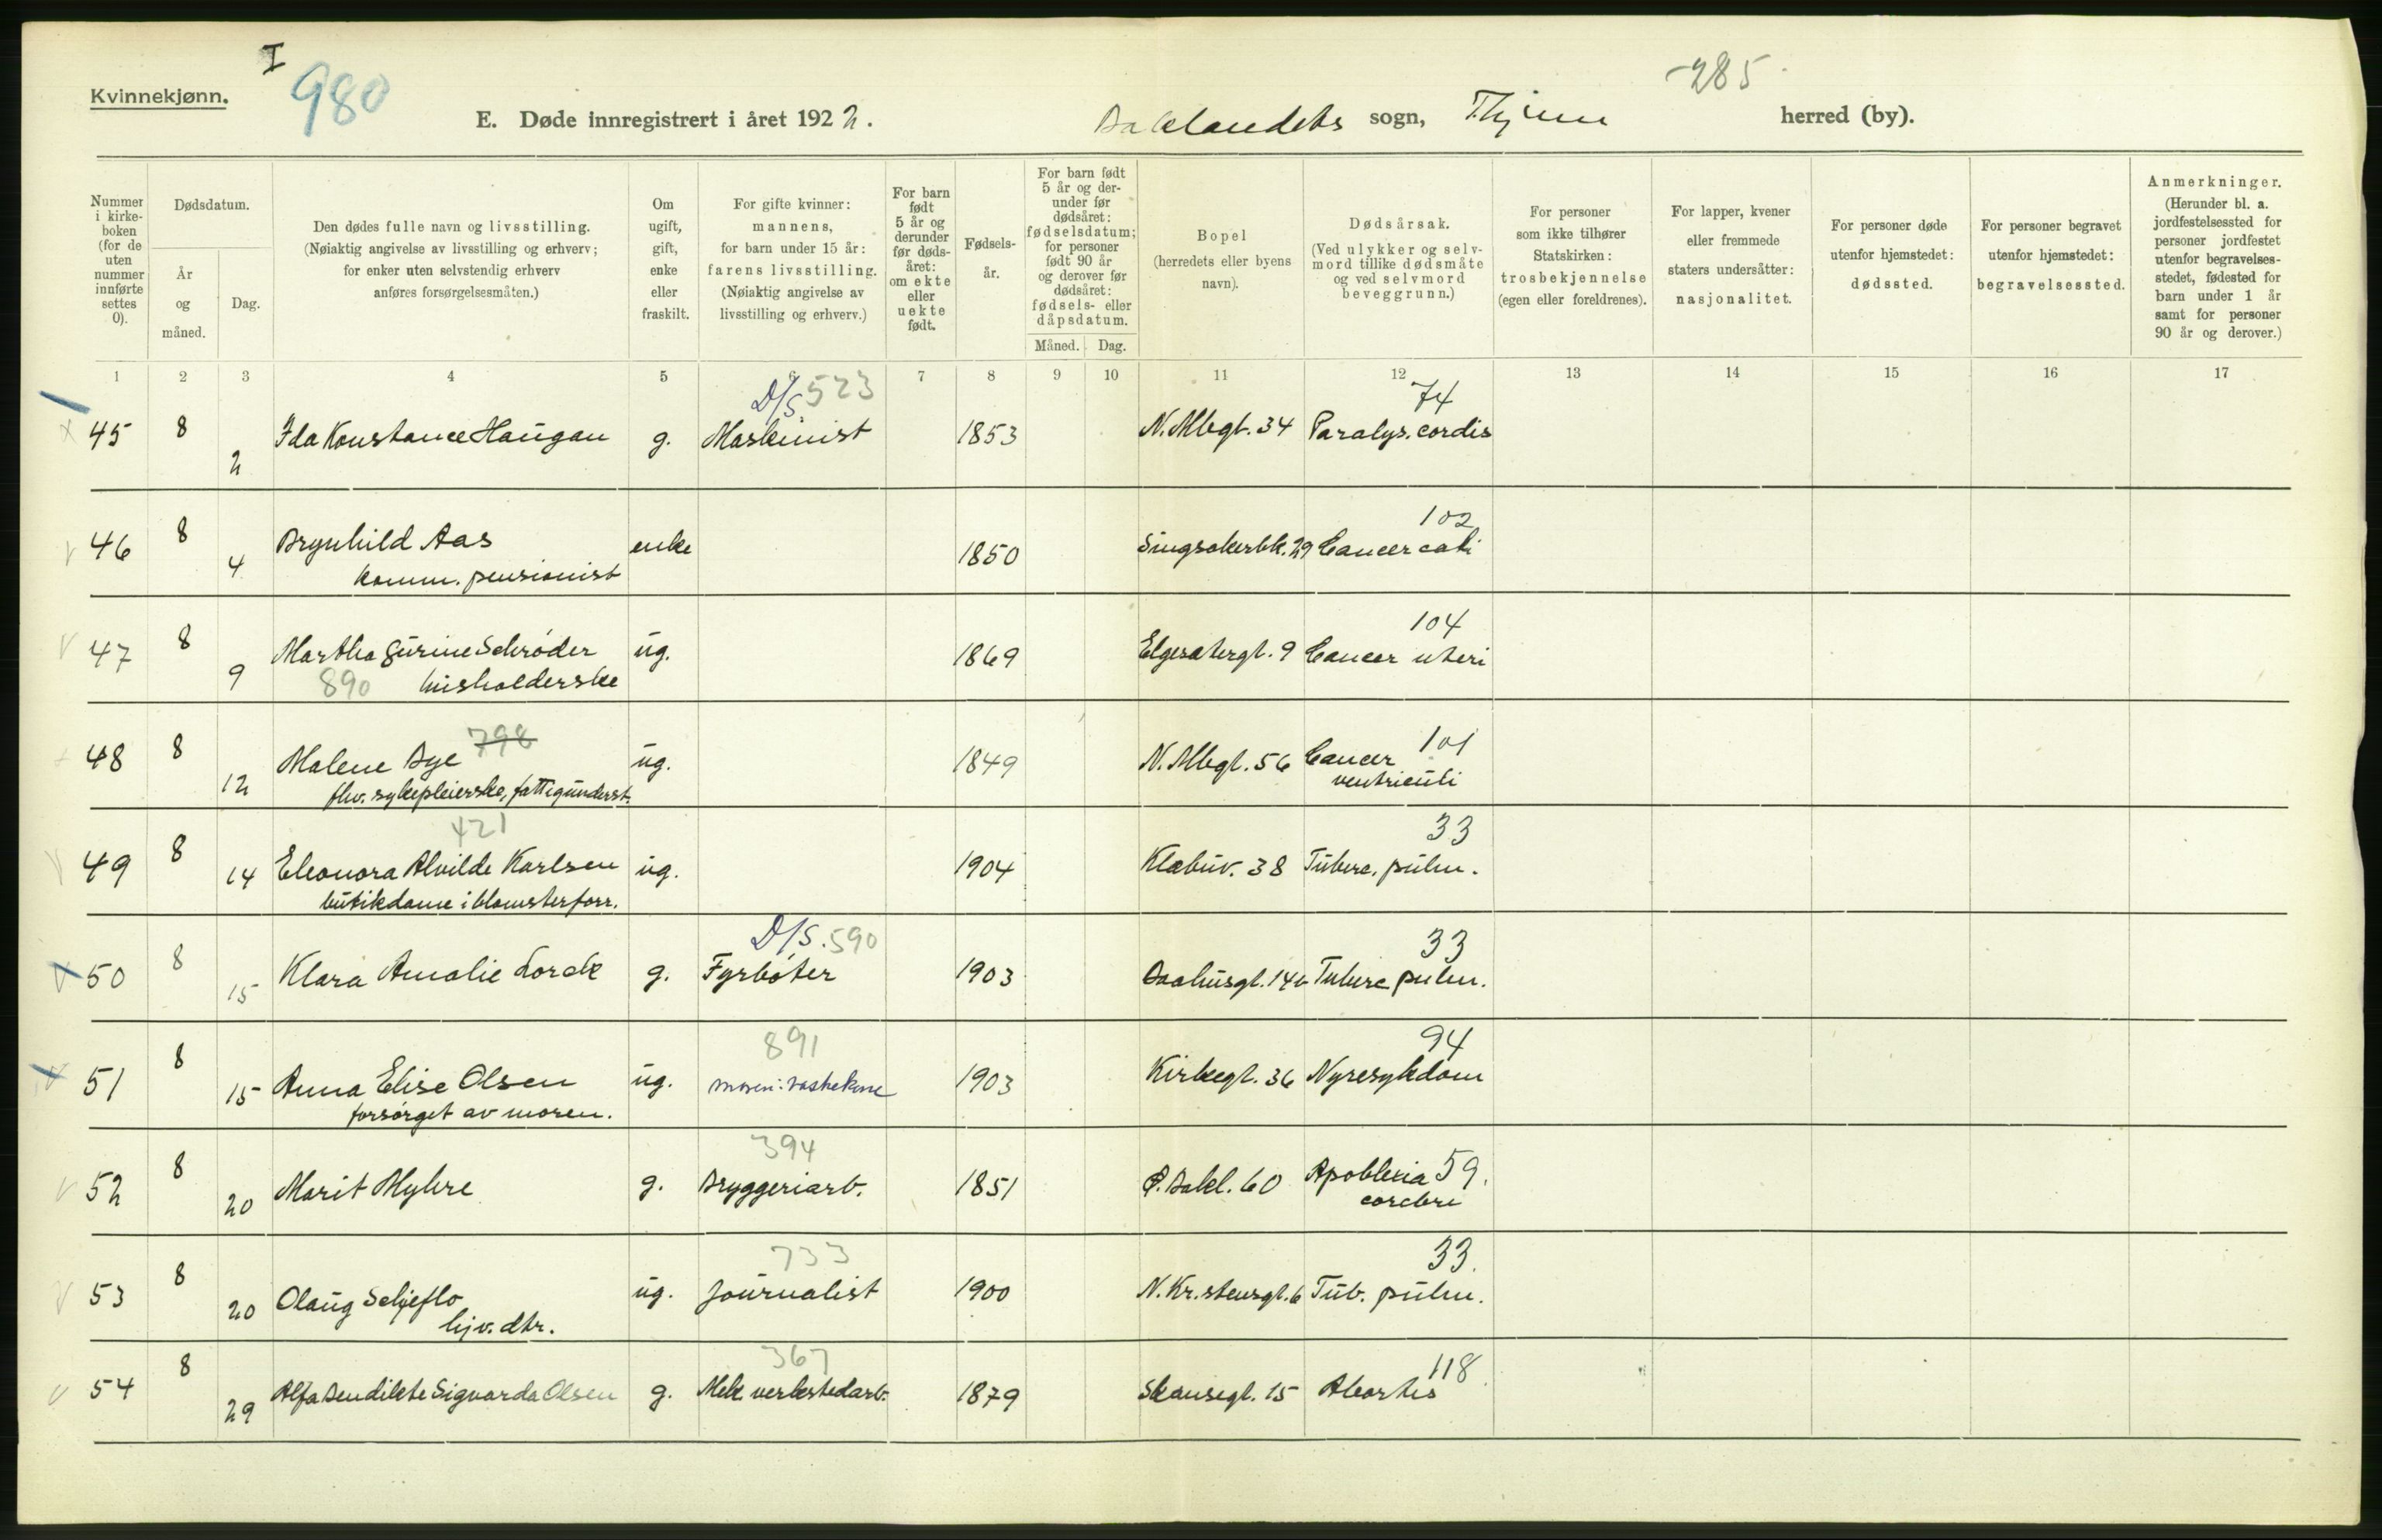 I
Kvinnekjønn.
980
-285
E. Døde innregistrert i året 1922.
Baklandets sogn, Thjem herred (by).
Nummer i kirke-boken (for de uten nummer innførte settes 0).
Dødsdatum.
År og måned.
Dag.
Den dødes fulle navn og livsstilling.
(Nøiaktig angivelse av livsstilling og erhverv;
for enker uten selvstendig erhverv
anføres forsørgelsesmåten.)
Om ugift, gift, enke eller fraskilt.
For gifte kvinner:
mannens,
for barn under 15 år:
farens livsstilling.
(Nøiaktig angivelse av
livsstilling og erhverv.)
For barn født 5 år og derunder før døds-året: om ekte eller uekte født.
Fødsels-år.
For barn født 5 år og der-under før dødsåret: fødselsdatum; for personer født 90 år og derover før dødsåret: fødsels- eller dåpsdatum.
Måned. Dag.
Bopel
(herredets eller byens
navn).
Dødsårsak.
(Ved ulykker og selv-
mord tillike dødsmåte
og ved selvmord
beveggrunn.)
For personer
som ikke tilhører
Statskirken:
trosbekjennelse
(egen eller foreldrenes).
For lapper, kvener
eller fremmede
staters undersåtter:
nasjonalitet.
For personer døde
utenfor hjemstedet:
dødssted.
For personer begravet
utenfor hjemstedet:
begravelsessted.
Anmerkninger.
(Herunder bl. a.
jordfestelsessted for
personer jordfestet
utenfor begravelses-
stedet, fødested for
barn under 1 år
samt for personer
90 år og derover.)
1 2 3 4 5 6 7 8 9 10 11 12 13 14 15 16 17
D/S 523 74
45 8 2 Ida Konstance Haugan g. Maskinist 1853 N. Allegt. 34 Paralys. cordis
102
46 8 4 Brynhild Aas enke 1850 Singsakerbk. 29 Cancer coli
komm. pensionist
104
47 8 9 Martha Gurine Schrøder ug. 1869 Elgesætergt. 9 Cancer uteri
890 husholderske
798 101
48 8 12 Malene Bye ug. 1849 N. Allegt. 56 Cancer
fhv. sykepleierske, fattigunderst. ventriculi
421 33
49 8 14 Eleonora Alvilde Karlsen ug. 1904 Klæbuv. 38 Tuberc. pulm.
butikdame i blomsterforr.
D/S. 590 33
50 8 15 Klara Amalie Lorck g. Fyrbøter 1903 Baahusgt. 14b Tuberc pulm.
891 94
51 8 15 Anna Elise Olsen ug. moren: vaskekone 1903 Kirkegt. 36 Nyresykdom
forsørget av moren.
394
52 8 20 Marit Myhre g. Bryggeriarb. 1851 Ø. Bakl. 60 Apoblexia 59.
cerebri
733 33.
53 8 20 Olaug Schjeflo ug. Journalist 1900 N. Kr.stensgt. 6 Tub. pulm.
hjv. dtr.
367 118
54 8 29 Alfa Bendikte Sigvarda Olsen g. Mek. verkstedarb. 1879 Skansegt. 15 Abortus